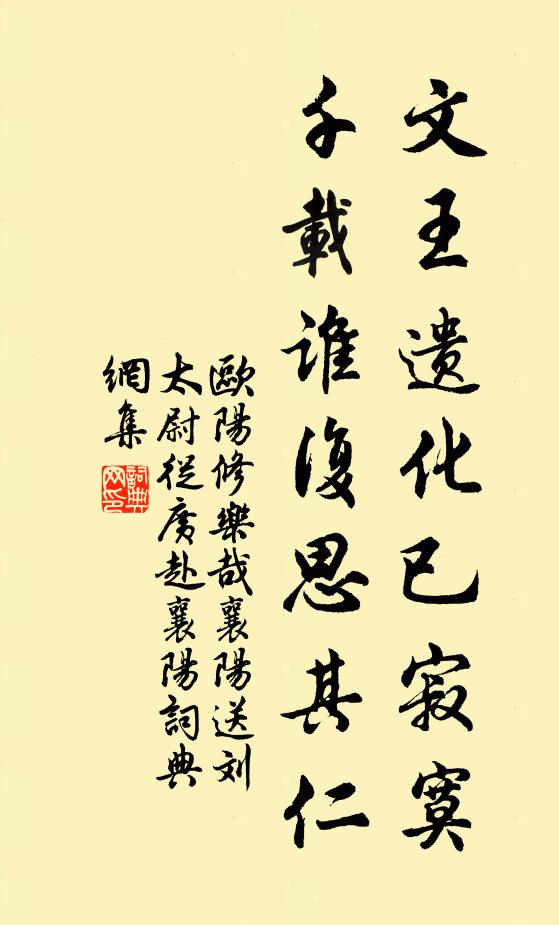 文王遗化已寂寞
千載誰復思其仁
歐陽修樂哉襄陽送刘
太尉從廣赴襄陽詞典
網集
詞典
网印